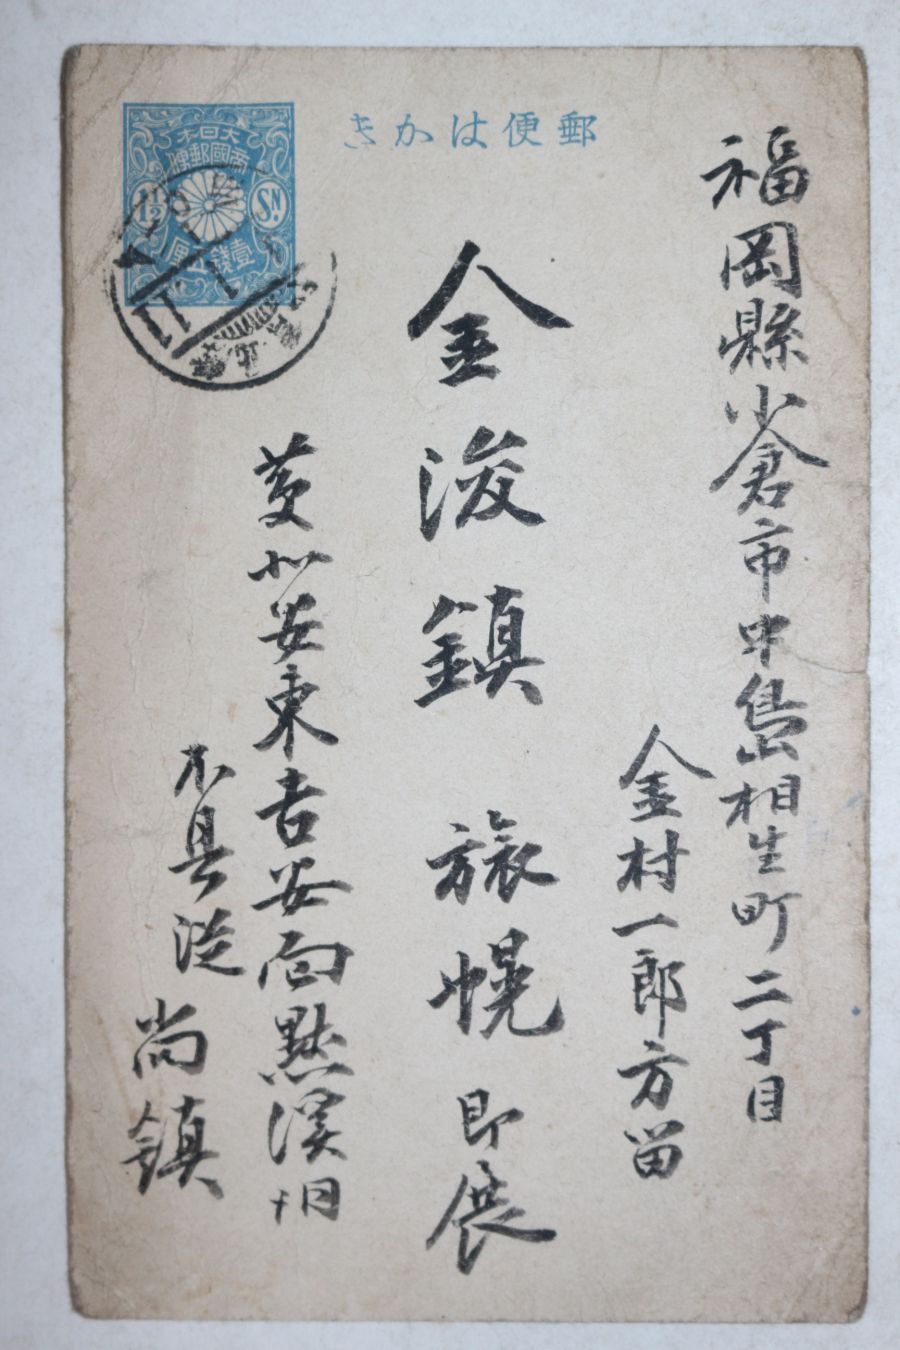 郵便はかき
大日本
帝國郵便
1½ SN.
壹錢五厘
福岡縣小倉市中島相生町二丁目
金村一郎方留
金浚鎮 旅幌 即展
慶北安東吉安面默溪洞
不具從
尚鎮